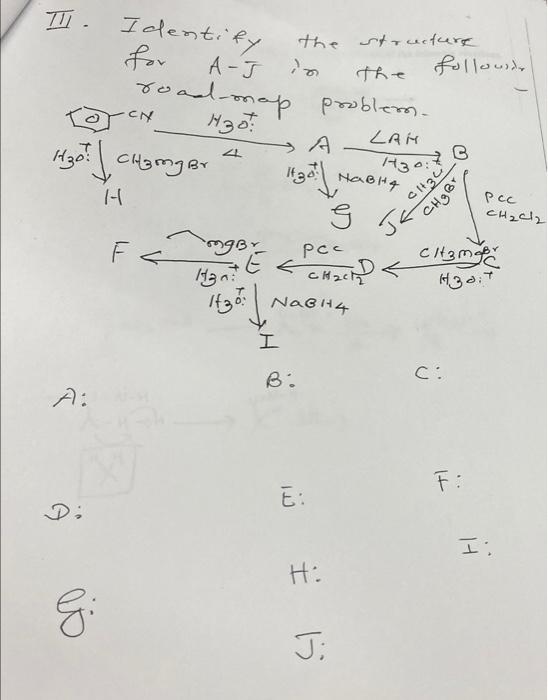 III. Identify the structure
for A-J in the following
road-map problem.
-CN H3O:+ Δ A LAH H3O:+ B
H3O:+ CH3MgBr H3O:+ NaBH4 CH3Li CH3Br PCC CH2Cl2
H G J
F MgBr H3O:+ E PCC CH2Cl2 D CH3MgBr H3O:+ C
H3O:+ NaBH4
I
A: B: C:
D: E: F:
G: H: I:
J: